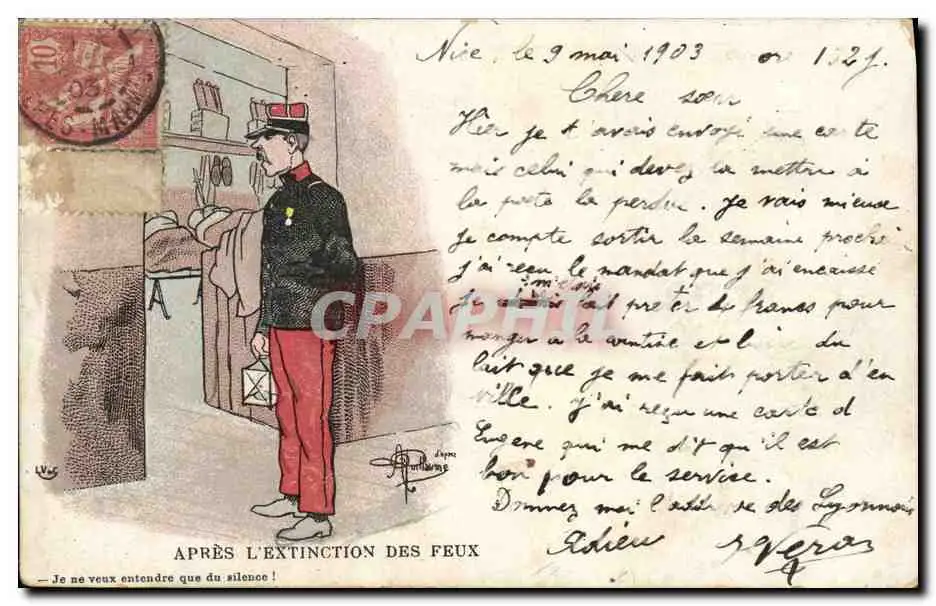 10
03
ES-MAR
Nice, le 9 mai 1903
Chere sœur
Hier je t'avais envoyé une carte
mais celui qui devez la mettre à
la poste la perdue. Je vais mieux
je compte sortir la semaine procha
j'ai reçu le mandat que j'ai encaissé
je m'etais fait preter 4 francs pour
manger a la cantine et boire du
lait que je me fait porter d'en
ville. J'ai reçu une carte d
Eugene qui me dit qu'il est
bon pour le service.
Donnez moi l'adresse des Lyonnais
Adieu Veran
CPAPHIL
d'après
A Guillaume
APRÈS L'EXTINCTION DES FEUX
— Je ne veux entendre que du silence !